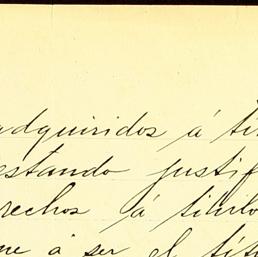 adquiridos á tí
estando justif
rechos á título
me á ser el tít